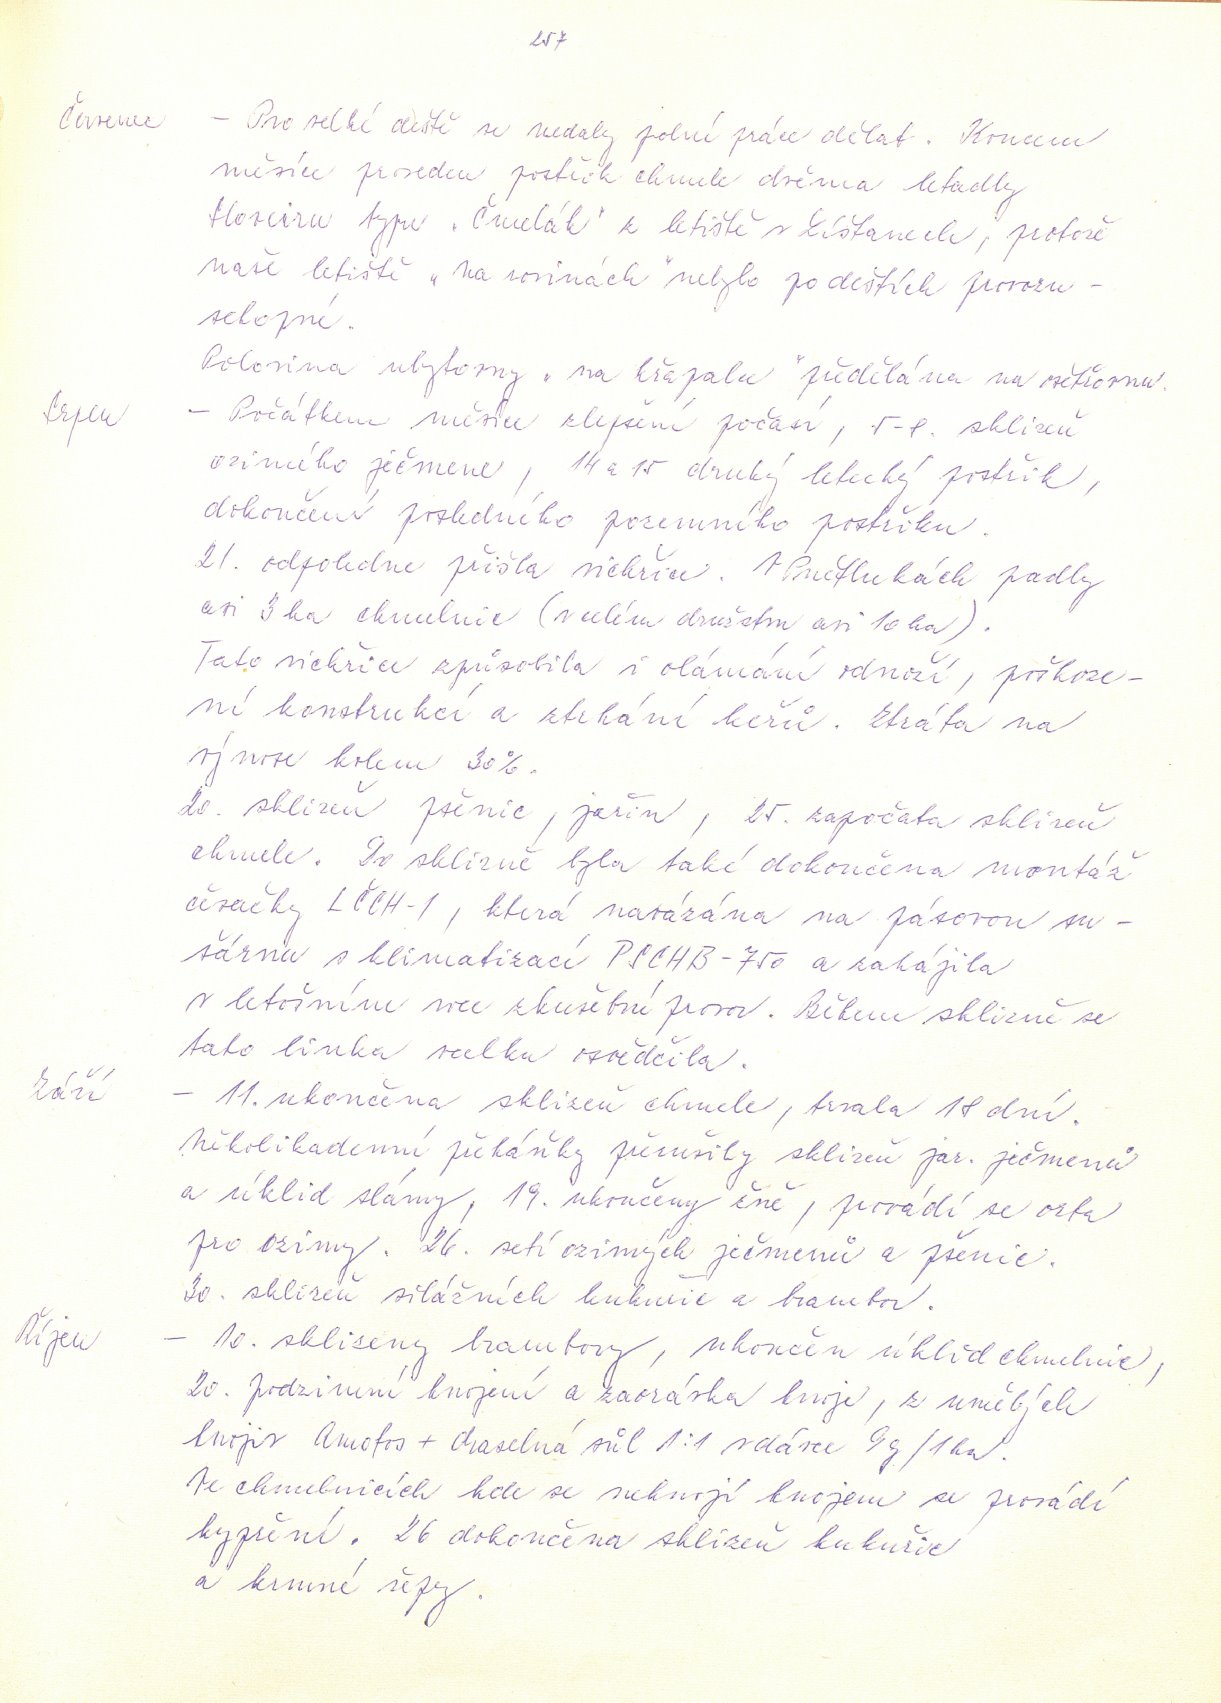 257
Červenec – Pro velké deště se nedaly polní práce dělat. Koncem
měsíce proveden postřik chmele dvěma letadly
Slovairu typu „Čmelák“ z letiště v Líšťanech, protože
naše letiště „Na rovinách“ nebylo po deštích provozu-
schopné.
Polovina ubytovny „na křápalu“ předělána na ošetřovnu.
Srpen – Počátkem měsíce zlepšení počasí, 5-8. sklizeň
ozimého ječmene, 14 a 15 druhý letecký postřik,
dokončení posledního pozemního postřiku.
21. odpoledne přišla vichřice. V Pnětlukách padly
asi 3 ha chmelnic (v celém družstvu asi 10 ha).
Tato vichřice způsobila i olámání odnoží, poškoze-
ní konstrukcí a strhání keřů. Ztráta na
výnose kolem 30%.
20. sklizeň pšenic, jařin, 25. započata sklizeň
chmele. Do sklizně byla také dokončena montáž
česačky LČCH-1, která navázána na pásovou su-
šárnu s klimatizací PSCHB-750 a zahájila
v letošním roce zkušební provoz. Během sklizně se
tato linka vcelku osvědčila.
Září – 11. ukončena sklizeň chmele, trvala 18 dní.
Několikadenní přeháňky přerušily sklizeň jar. ječmenů
a úklid slámy, 19. ukončeny žně, provádí se orba
pro ozimy. 26. setí ozimých ječmenů a pšenic.
30. sklizeň silážních kukuřic a brambor.
Říjen – 10. sklizeny brambory, ukončen úklid chmelnic,
20. podzimní hnojení a zaorávka hnoje, z umělých
hnojiv Amofos + draselná sůl 1:1 v dávce 9 q/1 ha.
Ve chmelnicích kde se nehnojí hnojem se provádí
kypření. 26 dokončena sklizeň kukuřic
a krmné řepy.